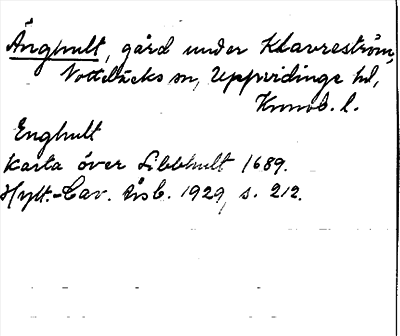 Änghult, gård under Klavreström,
Nottebäcks sn, Uppvidinge hd,
Kronob. l.
Enghult
Karta över Libbhult 1689.
Hylt.-Cav. årsb. 1929, s. 212.